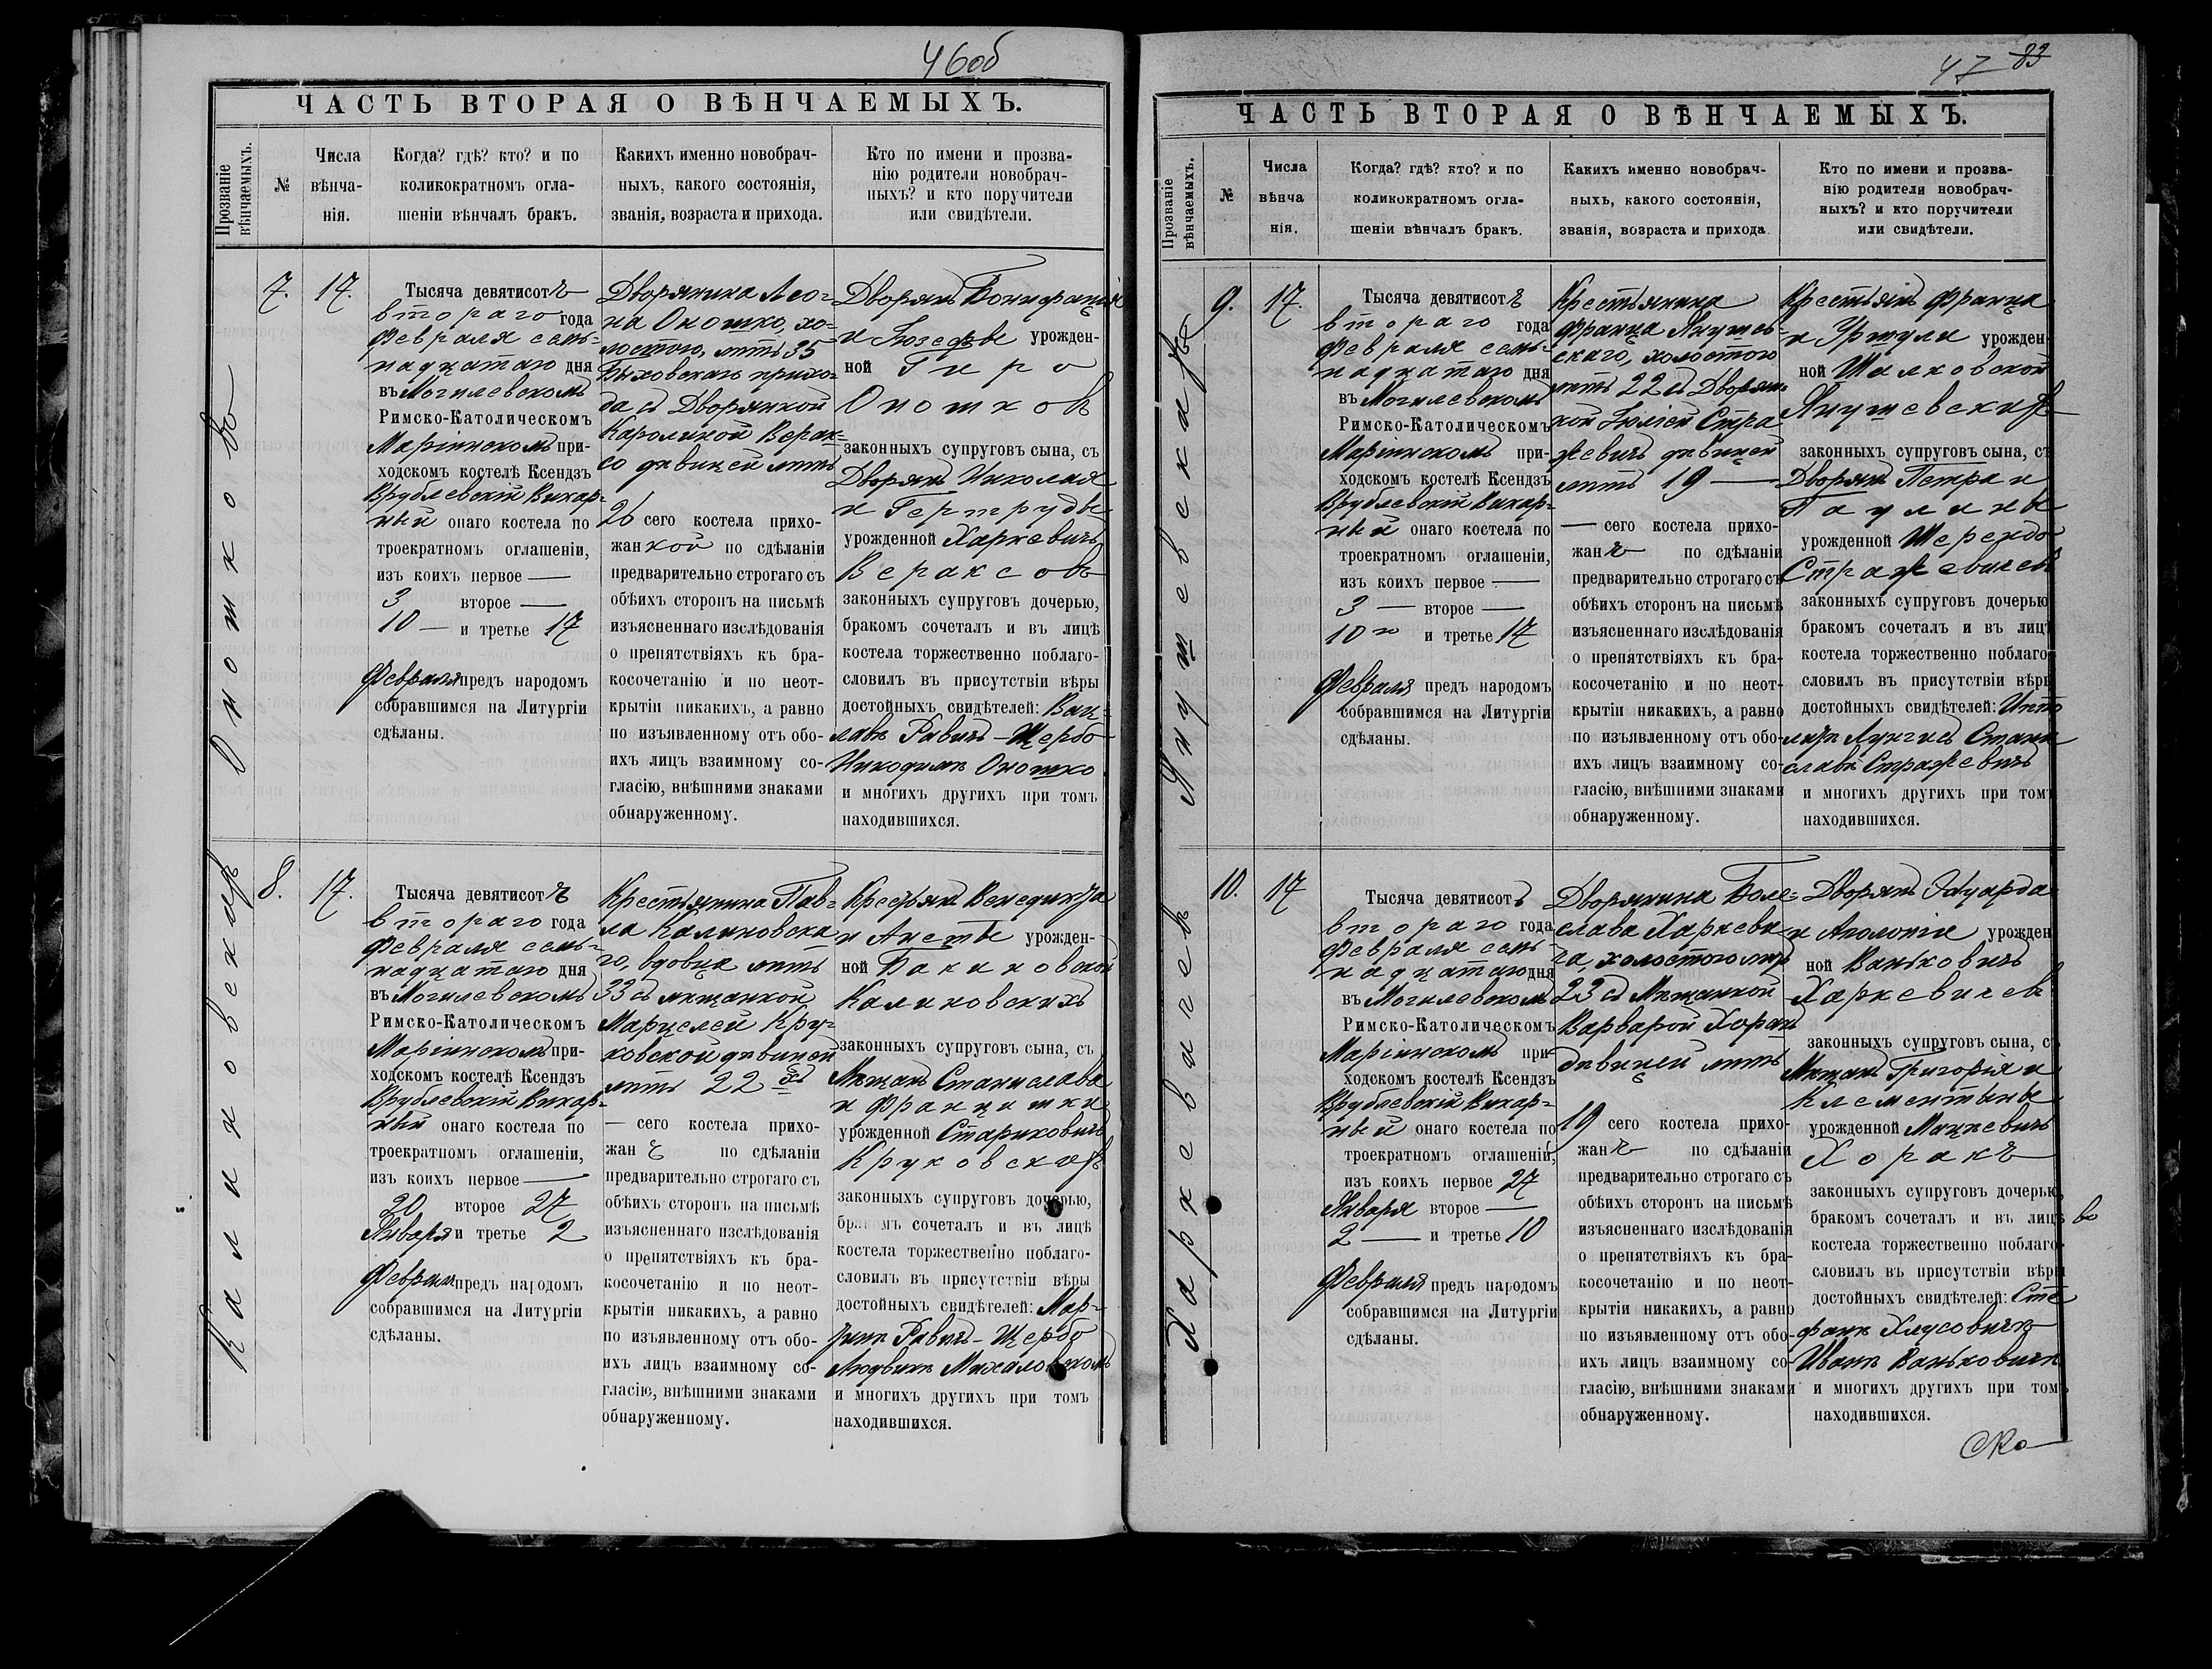 46об
ЧАСТЬ ВТОРАЯ О ВѢНЧАЕМЫХЪ.
Прозваніе вѣнчаемыхъ.
№
Числа
вѣнча-
нія.
Когда? гдѣ? кто? и по
коликократномъ огла-
шеніи вѣнчалъ бракъ.
Какихъ именно новобрач-
ныхъ, какого состоянія,
званія, возраста и прихода.
Кто по имени и прозва-
нію родители новобрач-
ныхъ? и кто поручители
или свидѣтели.
Оношково
7.
17.
Тысяча девятисотъ
второго года
Февраля семь-
надцатаго дня
въ Могилевскомъ
Римско-Католическомъ
Маріинскомъ при-
ходскомъ костелѣ Ксендзъ
Врублевскій Викар-
ный онаго костела по
троекратномъ оглашеніи,
изъ коихъ первое —
3 второе —
10 — и третье 17
Февраля предъ народомъ
собравшимся на Литургіи
сдѣланы.
Дворянина Лео-
на Оношко, хо-
лостого, лѣтъ 35
Быховскаго прихо-
да съ Дворянкой
Каролиной Верак-
со дѣвицей лѣтъ
26 сего костела прихо-
жанкой по сдѣланіи
предварительно строгаго съ
обѣихъ сторонъ на письмѣ
изъясненнаго изслѣдованія
о препятствіяхъ къ бра-
косочетанію и по неот-
крытіи никакихъ, а равно
по изъявленному отъ обо-
ихъ лицъ взаимному со-
гласію, внѣшними знаками
обнаруженному.
Дворянъ Бонифація
и Іозефы урожден-
ной Гиро
Оношковъ
законныхъ супруговъ сына, съ
Дворянъ Николая
и Гертруды
урожденной Харкевичъ
Вераксовъ
законныхъ супруговъ дочерью,
бракомъ сочеталъ и въ лицѣ
костела торжественно поблаго-
словилъ въ присутствіи вѣры
достойныхъ свидѣтелей: Вац-
лавѣ Равичъ-Щербо
Никодимѣ Оношко
и многихъ другихъ при томъ
находившихся.
Калиновскихъ
8.
17.
Тысяча девятисотъ
второго года
Февраля семь-
надцатаго дня
въ Могилевскомъ
Римско-Католическомъ
Маріинскомъ при-
ходскомъ костелѣ Ксендзъ
Врублевскій Викар-
ный онаго костела по
троекратномъ оглашеніи,
изъ коихъ первое —
20 второе 27
Января и третье 2
Февраля предъ народомъ
собравшимся на Литургіи
сдѣланы.
Крестьянина Пав-
ла Калиновска-
го, вдовца лѣтъ
33 съ мѣщанкой
Марцелей Кру-
ковской дѣвицей
лѣтъ 22хъ
— сего костела прихо-
жанъ по сдѣланіи
предварительно строгаго съ
обѣихъ сторонъ на письмѣ
изъясненнаго изслѣдованія
о препятствіяхъ къ бра-
косочетанію и по неот-
крытіи никакихъ, а равно
по изъявленному отъ обо-
ихъ лицъ взаимному со-
гласію, внѣшними знаками
обнаруженному.
Крестьянъ Венедикта
и Анеты урожден-
ной Бакиновской
Калиновскихъ
законныхъ супруговъ сына, съ
Мѣщанъ Станислава
и Францишки
урожденной Стариковичъ
Круковскихъ
законныхъ супруговъ дочерью,
бракомъ сочеталъ и въ лицѣ
костела торжественно поблаго-
словилъ въ присутствіи вѣры
достойныхъ свидѣтелей: Мар-
тинѣ Равичъ-Щербо
Людвикѣ Михаловскомъ
и многихъ другихъ при томъ
находившихся.
47 83
ЧАСТЬ ВТОРАЯ О ВѢНЧАЕМЫХЪ.
Прозваніе вѣнчаемыхъ.
№
Числа
вѣнча
нія.
Когда? гдѣ? кто? и по
коликократномъ огла-
шеніи вѣнчалъ бракъ.
Какихъ именно новобрач-
ныхъ, какого состоянія,
званія, возраста и прихода
Кто по имени и прозва-
нію родители новобрач-
ныхъ? и кто поручители
или свидѣтели.
Янушевскихъ
9.
17.
Тысяча девятисотъ
второго года
Февраля семь-
надцатаго дня
въ Могилевскомъ
Римско-Католическомъ
Маріинскомъ при-
ходскомъ костелѣ Ксендзъ
Врублевскій Викар-
ный онаго костела по
троекратномъ оглашеніи,
изъ коихъ первое —
3 — второе —
10го и третье 17
Февраля предъ народомъ
собравшимся на Литургіи
сдѣланы.
Крестьянина
Франца Янушев-
скаго, холостого
лѣтъ 22 съ Дворян-
кой Юліей Стра
жевичъ дѣвицей
лѣтъ 19 —
— сего костела прихо-
жанъ по сдѣланіи
предварительно строгаго съ
обѣихъ сторонъ на письмѣ
изъясненнаго изслѣдованія
о препятствіяхъ къ бра-
косочетанію и по неот-
крытіи никакихъ, а равно
по изъявленному отъ обо-
ихъ лицъ взаимному со-
гласію, внѣшними знаками
обнаруженному.
Крестьянъ Франца
и Уршули урожден
ной Шалковской
Янушевскихъ
законныхъ супруговъ сына, съ
Дворянъ Петра и
Паулины
урожденной Шерендо
Стражевичевъ
законныхъ супруговъ дочерью
бракомъ сочеталъ и въ лицѣ
костела торжественно поблаго-
словилъ въ присутствіи вѣры
достойныхъ свидѣтелей:
Стани
славѣ Стражевичъ
и многихъ другихъ при томъ
находившихся.
Харкевичевъ
10.
17
Тысяча девятисотъ
второго года
Февраля семь
надцатаго дня
въ Могилевскомъ
Римско-Католическомъ
Маріинскомъ при-
ходскомъ костелѣ Ксендзъ
Врублевскій Викар-
ный онаго костела по
троекратномъ оглашеніи,
изъ коихъ первое 27
Января второе —
2 — и третье 10
Февраля предъ народомъ
собравшимся на Литургіи
сдѣланы.
Дворянина Боле-
слава Харкеви-
ча, холостого лѣтъ
23 съ Мѣщанкой
Варварой Хорак
дѣвицей лѣтъ
19 сего костела прихо-
жанъ по сдѣланіи
предварительно строгаго съ
обѣихъ сторонъ на письмѣ
изъясненнаго изслѣдованія
о препятствіяхъ къ бра-
косочетанію и по неот-
крытіи никакихъ, а равно
по изъявленному отъ обо-
ихъ лицъ взаимному со-
гласію, внѣшними знаками
обнаруженному.
Дворянъ Эдуарда
и Аполоніи урожден
ной Ваньковичъ
Харкевичевъ
законныхъ супруговъ сына, съ
Мѣщанъ Григорія и
Клементины
урожденной Мацкевичъ
Хоракъ
законныхъ супруговъ дочерью,
бракомъ сочеталъ и въ лицѣ
костела торжественно поблаго-
словилъ въ присутствіи вѣры
достойныхъ свидѣтелей: Сте
фанѣ Хлусовичъ
Иванѣ Ваньковичѣ
и многихъ другихъ при томъ
находившихся.
во